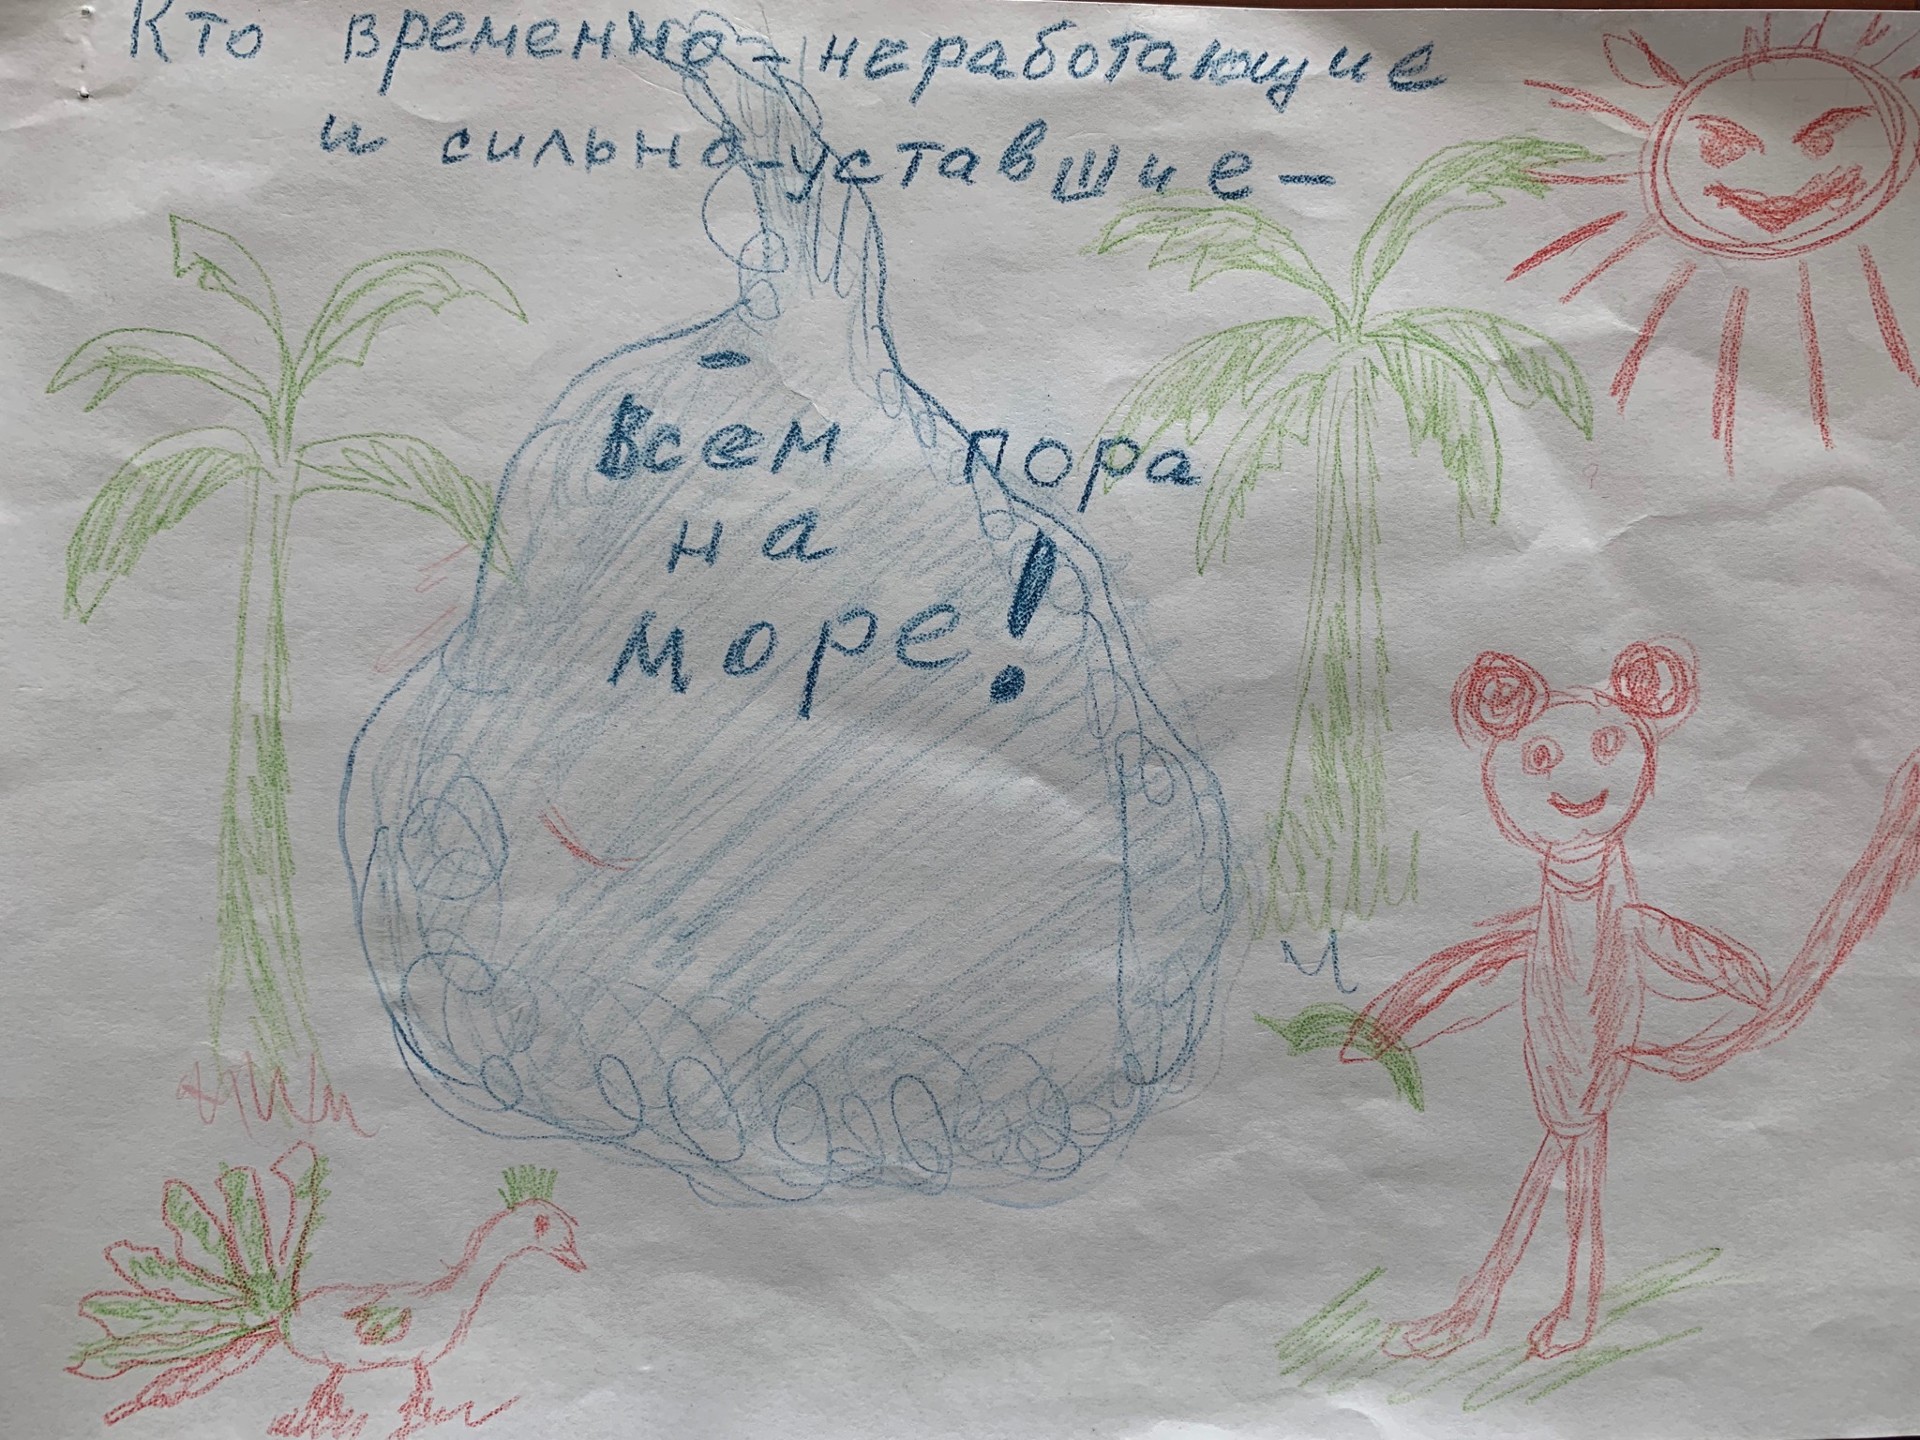 Кто временно-неработающие
и сильно-уставшие-
- Всем пора
на
море!